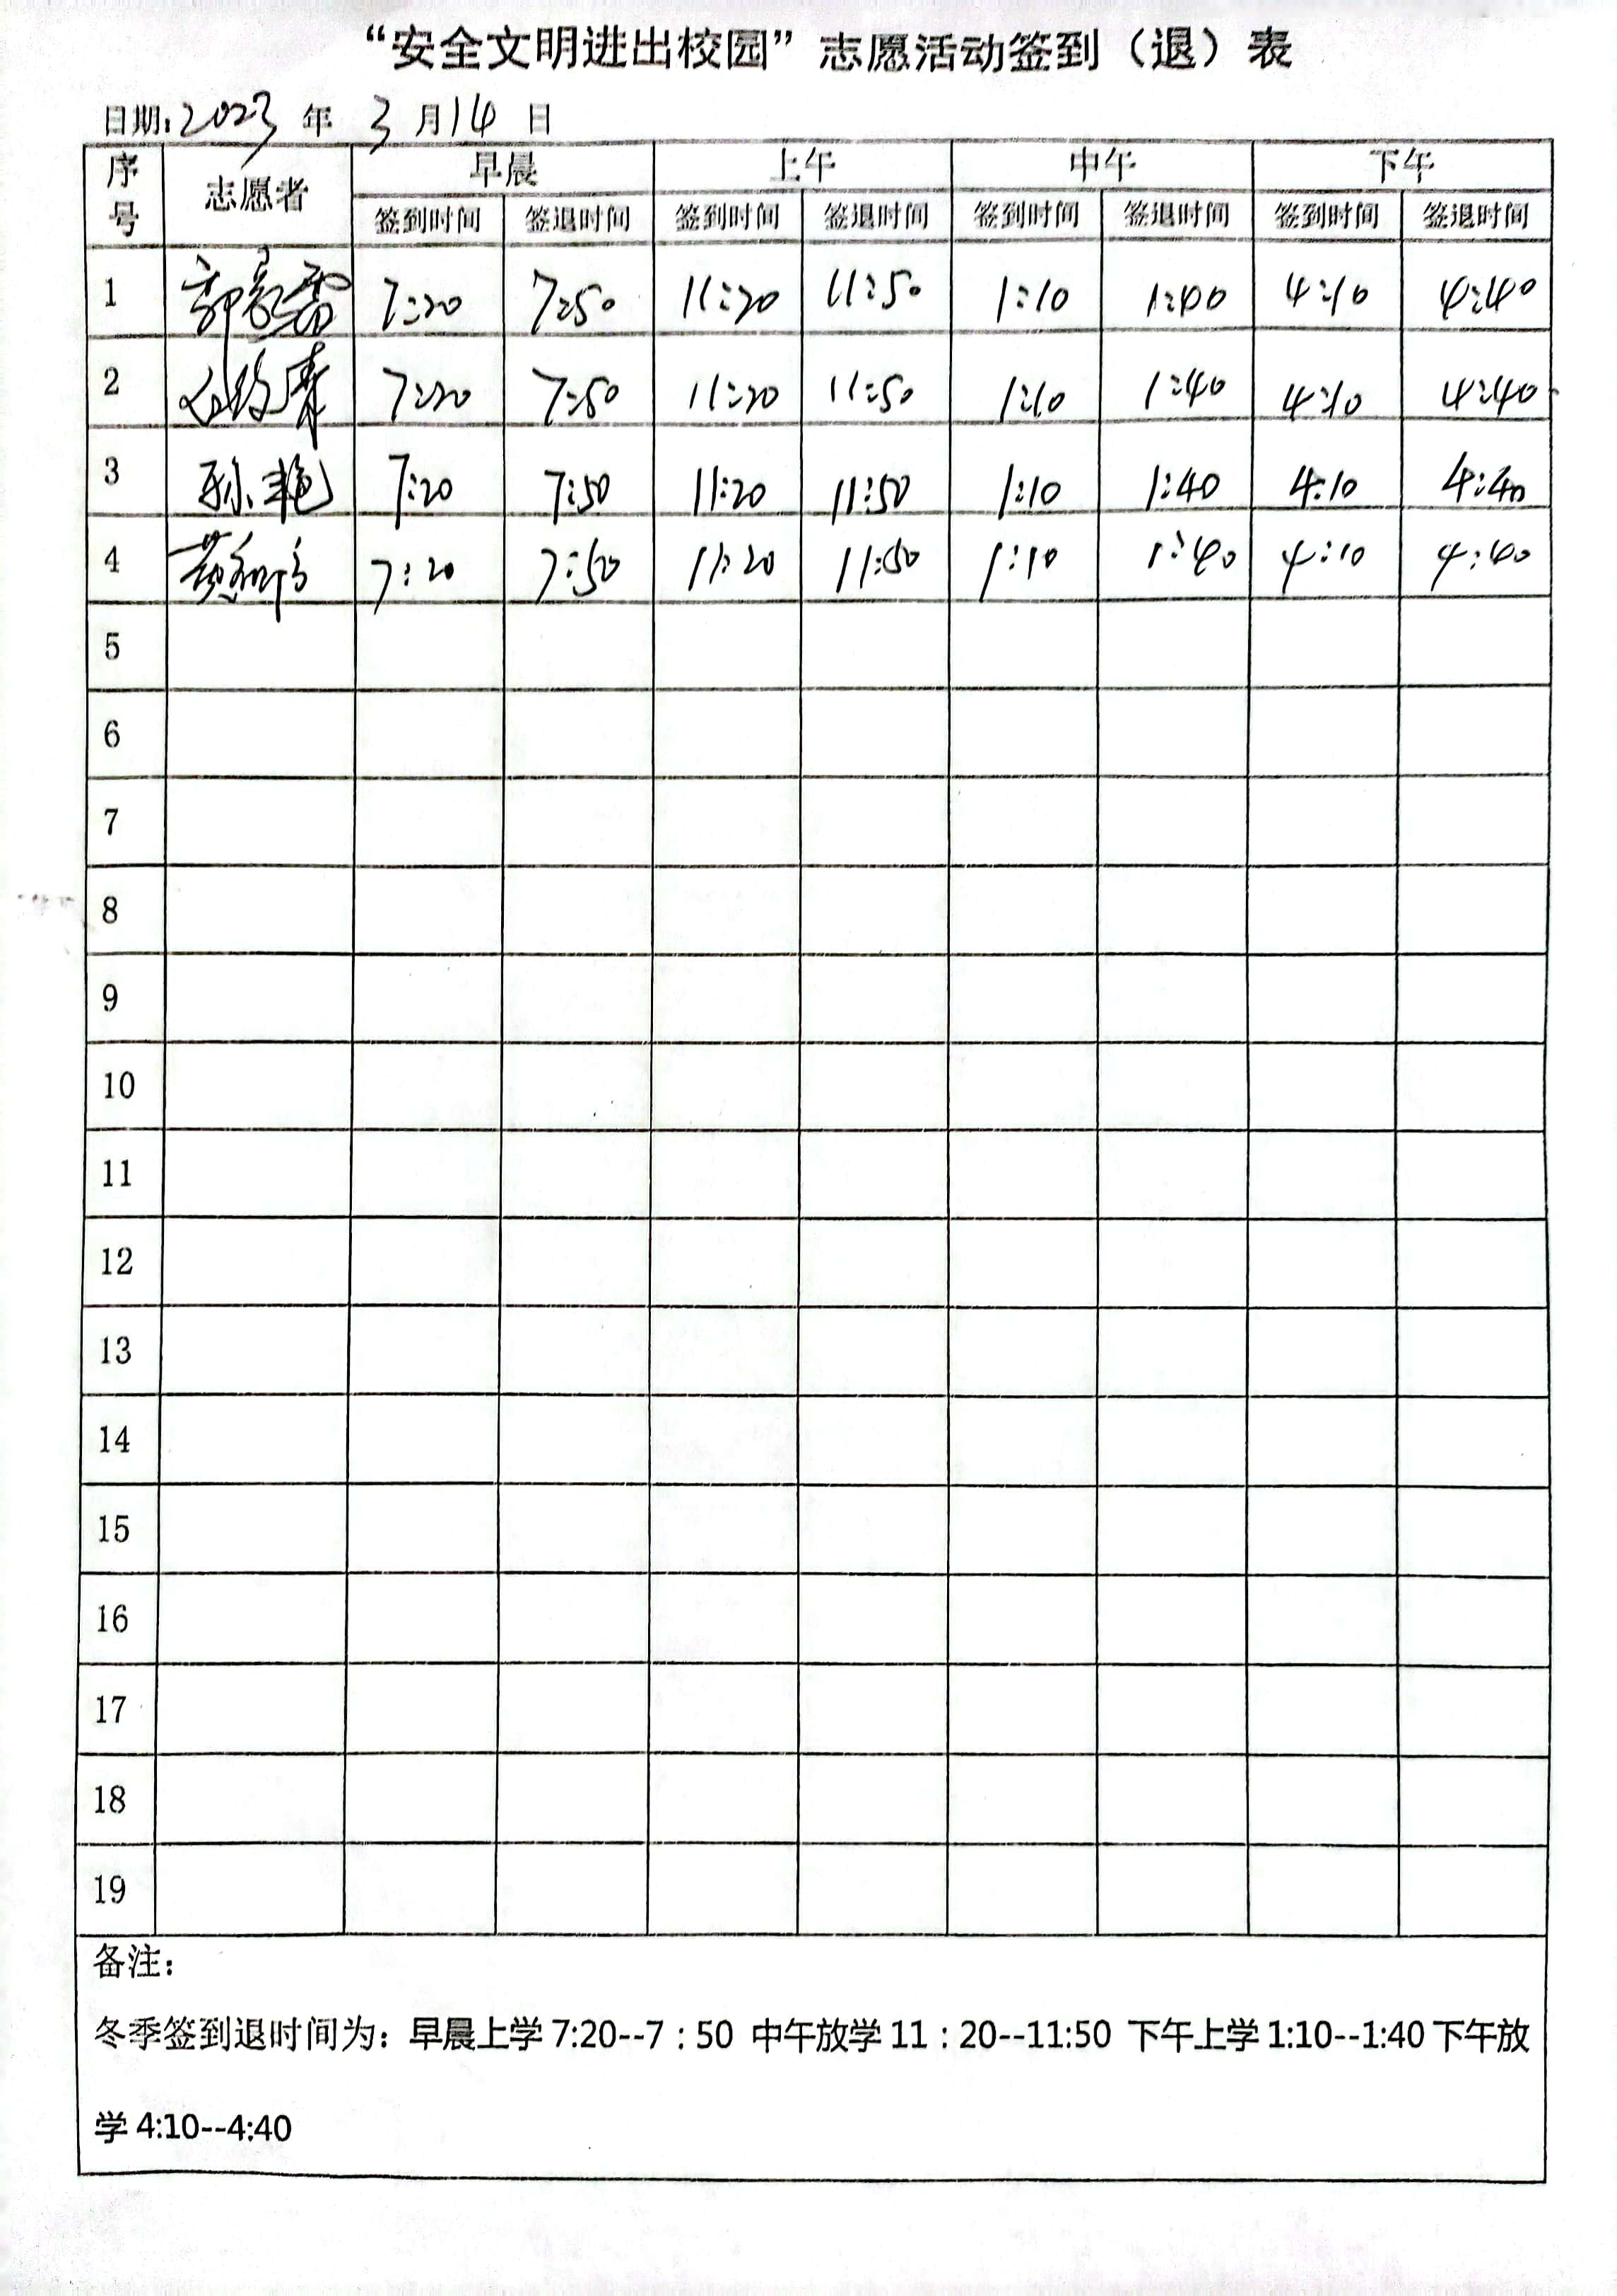 “安全文明进出校园”志愿活动签到（退）表
日期:2023 年 3 月 14 日
序号 志愿者 早晨 上午 中午 下午
签到时间 签退时间 签到时间 签退时间 签到时间 签退时间 签到时间 签退时间
1 7:20 7:50 11:20 11:50 1:10 1:40 4:10 4:40
2 7:20 7:50 11:20 11:50 1:10 1:40 4:10 4:40
3 孙艳 7:20 7:50 11:20 11:50 1:10 1:40 4:10 4:40
4 7:20 7:50 11:20 11:50 1:10 1:40 4:10 4:40
5
6
7
8
9
10
11
12
13
14
15
16
17
18
19
备注：
冬季签到退时间为：早晨上学 7:20--7：50 中午放学 11：20--11:50 下午上学 1:10--1:40 下午放
学 4:10--4:40